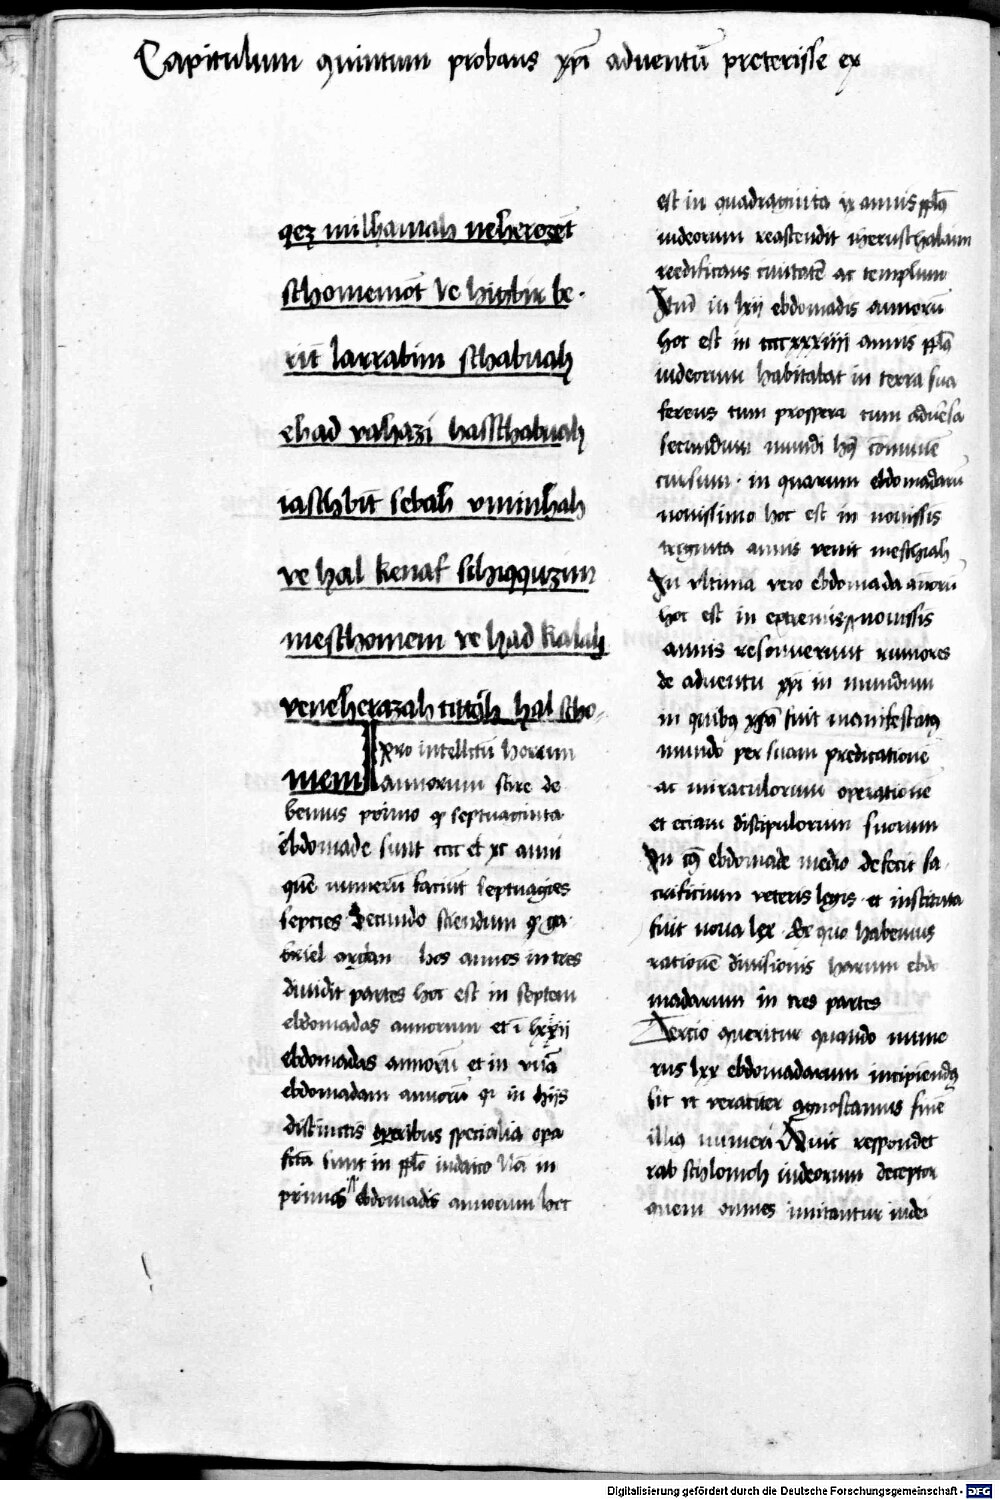 Capitulum quintum probans xpi adventū preterisse ex
qez milhamah neherozet
schomemōt ve higbir be-
rit larrabim schabuah
ehad vahazi hasschabuah
iaschbit sebah uminhah
ve hal kenaf schiqquzim
meschomem ve had kalah
veneherazah tittoh hal scho-
mem
pro intellectu horum
annorum scire de
bemus primo q septuaginta
ebdomade sunt cccc et xc anni
quē numerū faciūt septuagies
septies Secundo sciendum q ga
briel hos annos in tres
dividit partes hoc est in septem
ebdomadas annorum et ī lxii
ebdomadas annorū et in unā
ebdomadam annorū q in hijs
distinctis operibus specialia opa
fcta sunt in pplo iudaico Nā in
primis ebdomadis annorum hoc
est in quadraginta ix annis pplus
iudeorum reascendit iheruschalaim
reedificans civitatē ac templum
in lxii ebdomadis annorū
hoc est in ccccxxxiiii annis pplus
iudeorum habitabat in terra sua
ferens tum prospera tum adversa
secundum mundi hui9 cōmunē
cursum · in quarum ebdomadarū
novissimo hoc est in noviss
triginta annis venit meschiah
In ultima vero ebdomada annorū
hoc est in extremis noviss
annis resonuerunt rumores
de adventu xpi in mundum
in quib9 xps fuit manifestatus
mundo per suam predicationē
ac miraculorum operationē
et eciam discipulorum suorum
In cui9 ebdomade medio defecit sa
crificium veteris legis et instituta
fuit nova lex Et quo habemus
rationē divisionis harum ebdo
madarum in tres partes
Tercio queritur quando nume
rus lxx ebdomadarum incipiendus
sit ut veraciter agnoscamus finē
illius numeri respondet
rab schlomoh iudeorum deceptor
quem omnes imitantur iudei
Digitalisierung gefördert durch die Deutsche Forschungsgemeinschaft - DFG